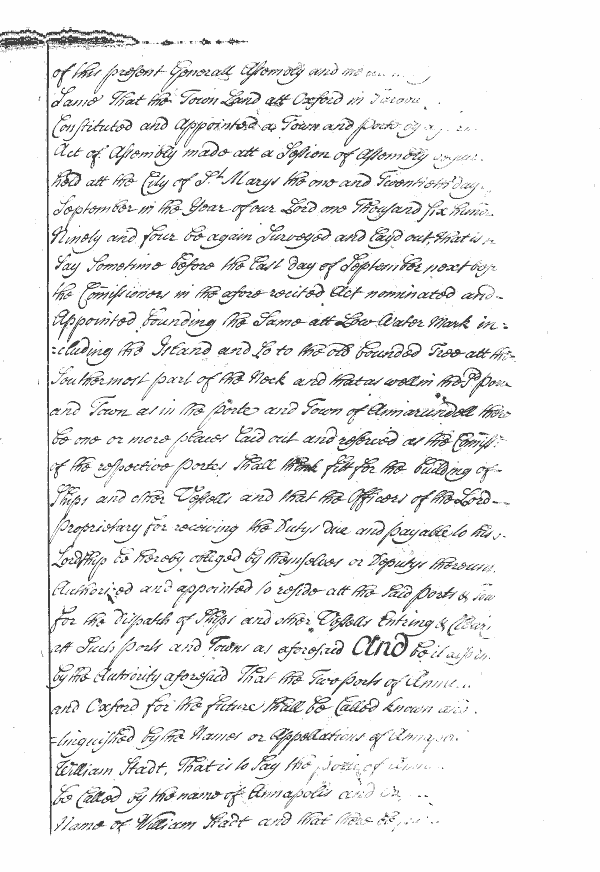 of this present Generall Assembly and
Same That the Town Land att Oxford in
Constituted and Appointed a Town and Porte
Act of Assembly made att a Session of Assembly
held att the City of St. Marys the one and Twentieth day
September in the Year of our Lord one Thousand six
Ninely and four be again Surveyed and layd out, that is
Say Sometime before the last day of September next
the Comissioners in the afore recited Act nominated and -
Appointed bounding the Same att Low Water Mark in =
= cluding the Island and so to the old bounded Tree att the
Southermost part of the Neck and that as well in the Sd.
and Town as in the Porte and Town of Annarundell there
be one or more places laid out and reserved as the Comissrs
of the respective Portes Shall think fitt for the building of -
Ships and other Vessells and that the Officers of the Lord -
Proprietary for receiving the Dutys due and payable to his
Lordship be thereby obliged by themselves or Deputys thereunto
Authorized and appointed to reside att the Said Ports &
for the Dispatch of Ships and other Vessells Entring &
att Such ports and Towns as aforesaid And be it
by the Authority aforesaid That the Two ports of
and Oxford for the future shall be Called known
= tinguished by the Names or Appellations of
William Stadt, That is to Say the
be Called by the name of Annapolis and
Name of William Stadt and that there be